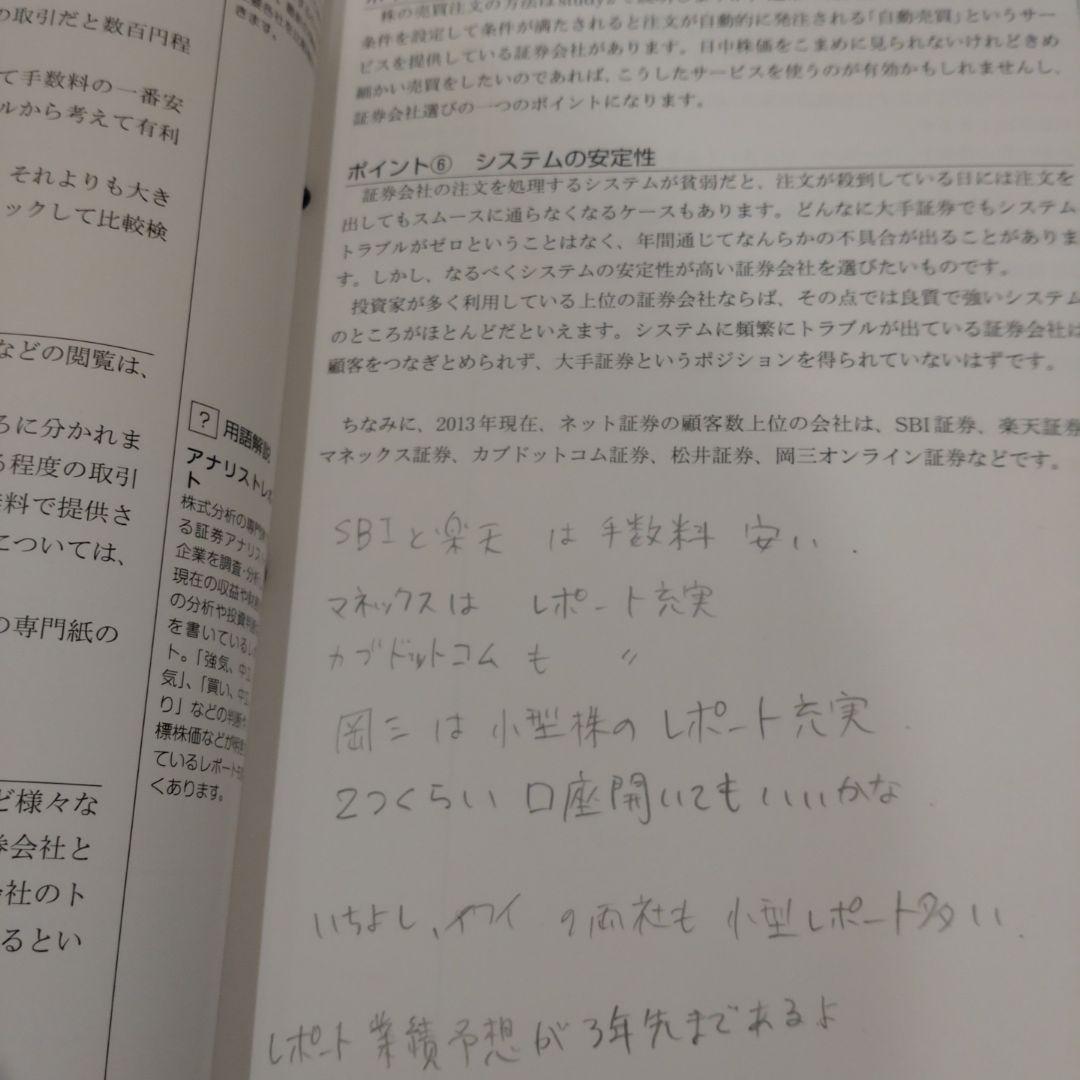 の取引だと数百円程
て手数料の一番安
ルから考えて有利
それよりも大き
ックして比較検
などの閲覧は、
ろに分かれま
る程度の取引
料で提供さ
については、
の専門紙の
ど様々な
券会社と
会社のト
るとい
きます。
? 用語解説
アナリストレポ
ト
株式分析の専門
る証券アナリス
企業を調査・分
現在の収益や
の分析や投資判
を書いているレ
ト。「強気、中立
気」、「買い、中立
り」などの判断
標株価などが
ているレポート
くあります。
株の売買注文の方法はstudy
条件を設定して条件が満たされると注文が自動的に発注される「自動売買」というサー
ビスを提供している証券会社があります。日中株価をこまめに見られないけれどきめ
細かい売買をしたいのであれば、こうしたサービスを使うのが有効かもしれませんし、
証券会社選びの一つのポイントになります。
ポイント⑥ システムの安定性
証券会社の注文を処理するシステムが貧弱だと、注文が殺到している日には注文を
出してもスムースに通らなくなるケースもあります。どんなに大手証券でもシステム
トラブルがゼロということはなく、年間通じてなんらかの不具合が出ることがありま
す。しかし、なるべくシステムの安定性が高い証券会社を選びたいものです。
投資家が多く利用している上位の証券会社ならば、その点では良質で強いシステム
のところがほとんどだといえます。システムに頻繁にトラブルが出ている証券会社は
顧客をつなぎとめられず、大手証券というポジションを得られていないはずです。
ちなみに、2013年現在、ネット証券の顧客数上位の会社は、SBI証券、楽天証券
マネックス証券、カブドットコム証券、松井証券、岡三オンライン証券などです。
SBIと楽天 は 手数料 安い.
マネックスは レポート充実
カブドットコム も 〃
岡三は小型株のレポート充実.
2つくらい 口座開いてもいいかな.
いちよし、 の両社も 小型レポート多い.
レポート 業績予想が3年先まであるよ